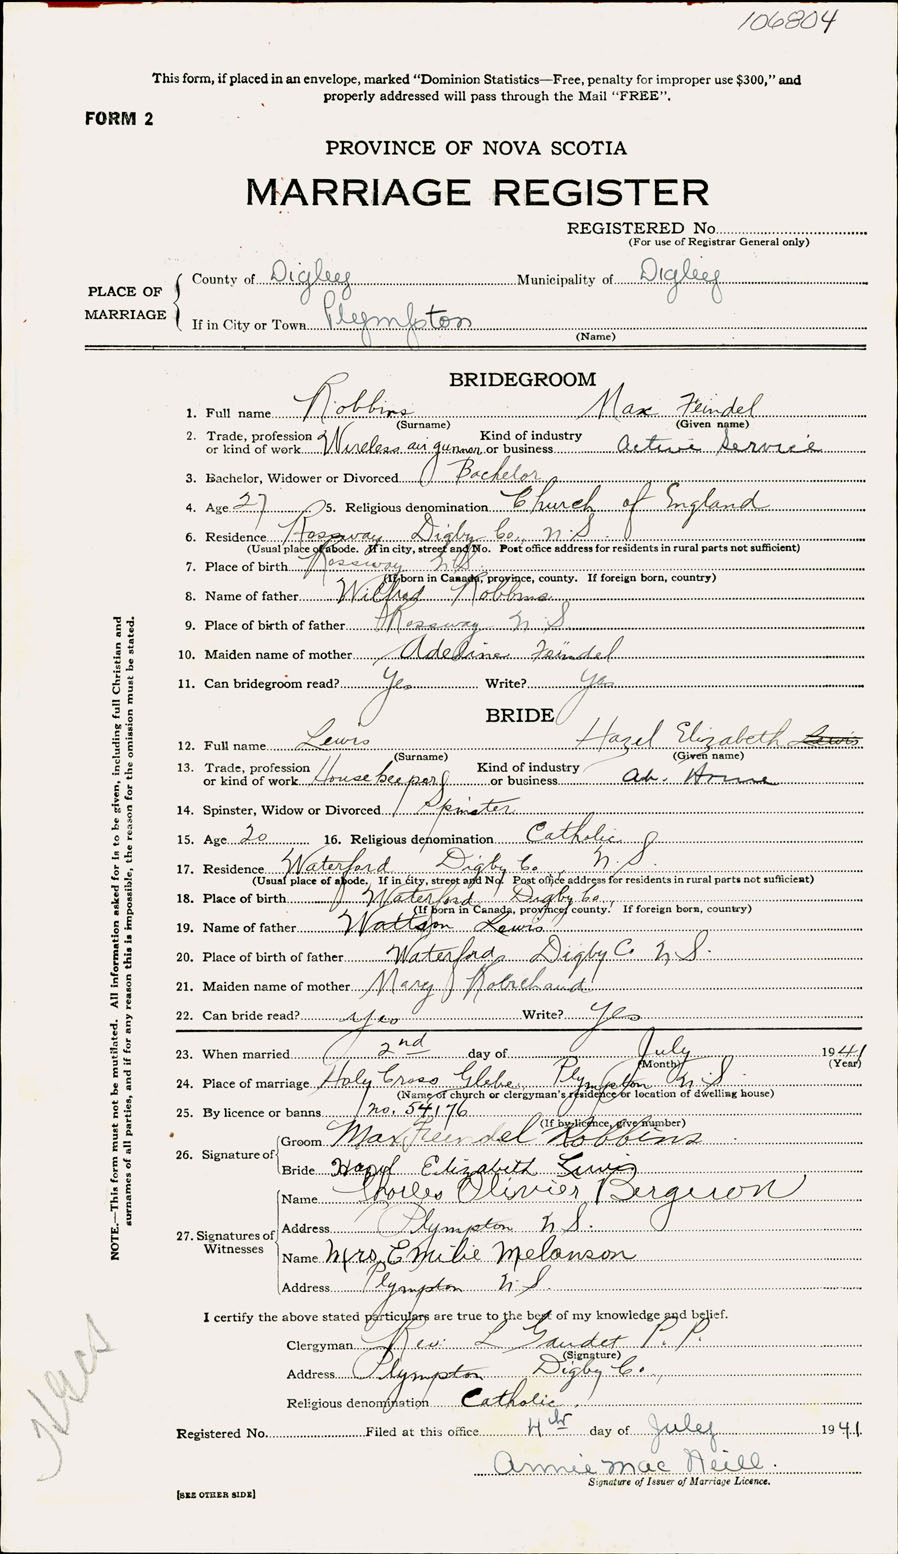 106804
This form, if placed in an envelope, marked "Dominion Statistics—Free, penalty for improper use $300," and
properly addressed will pass through the Mail "FREE".
FORM 2
PROVINCE OF NOVA SCOTIA
MARRIAGE REGISTER
REGISTERED No.
(For use of Registrar General only)
PLACE OF MARRIAGE
County of Digby Municipality of Digby
If in City or Town Plympton
(Name)
BRIDEGROOM
1. Full name Robbins Max Feindel
(Surname) (Given name)
2. Trade, profession or kind of work Wireless air gunner Kind of industry or business Active Service
3. Bachelor, Widower or Divorced Bachelor
4. Age 27 5. Religious denomination Church of England
6. Residence Rossway Digby Co., N.S.
(Usual place of abode. If in city, street and No. Post office address for residents in rural parts not sufficient)
7. Place of birth Rossway N.S.
(If born in Canada, province, county. If foreign born, country)
8. Name of father Wilfred Robbins
9. Place of birth of father Rossway N.S
10. Maiden name of mother Adeline Feindel
11. Can bridegroom read? Yes Write? Yes
BRIDE
12. Full name Lewis Hazel Elizabeth Lewis
(Surname) (Given name)
13. Trade, profession or kind of work Housekeeper Kind of industry or business At Home
14. Spinster, Widow or Divorced Spinster
15. Age 20 16. Religious denomination Catholic
17. Residence Waterford Digby Co. N.S.
(Usual place of abode. If in city, street and No. Post office address for residents in rural parts not sufficient)
18. Place of birth Waterford Digby Co.,
(If born in Canada, province, county. If foreign born, country)
19. Name of father Wattson Lewis
20. Place of birth of father Waterford Digby Co N.S.
21. Maiden name of mother Mary
22. Can bride read? Yes Write? Yes
23. When married 2nd day of July 1941
(Month) (Year)
24. Place of marriage Holy Cross Glebe, Plympton N.S.
(Name of church or clergyman's residence or location of dwelling house)
25. By licence or banns no. 54176
(If by licence, give number)
26. Signature of
Groom Max Feindel Robbins
Bride Hazel Elizabeth Lewis
27. Signatures of Witnesses
Name Charles Olivier Bergeron
Address Plympton N.S.
Name Mrs. Emilie Melanson
Address Plympton N.S.
I certify the above stated particulars are true to the best of my knowledge and belief.
Clergyman Rev. L Gaudet P.P.
(Signature)
Address Plympton Digby Co.,
Religious denomination Catholic.
Registered No. Filed at this office 4th day of July 1941.
Annie Mac Neill.
Signature of Issuer of Marriage Licence.
[SEE OTHER SIDE]
NOTE.—This form must not be mutilated. All information asked for is to be given, including full Christian and
surnames of all parties, and if for any reason this is impossible, the reason for the omission must be stated.